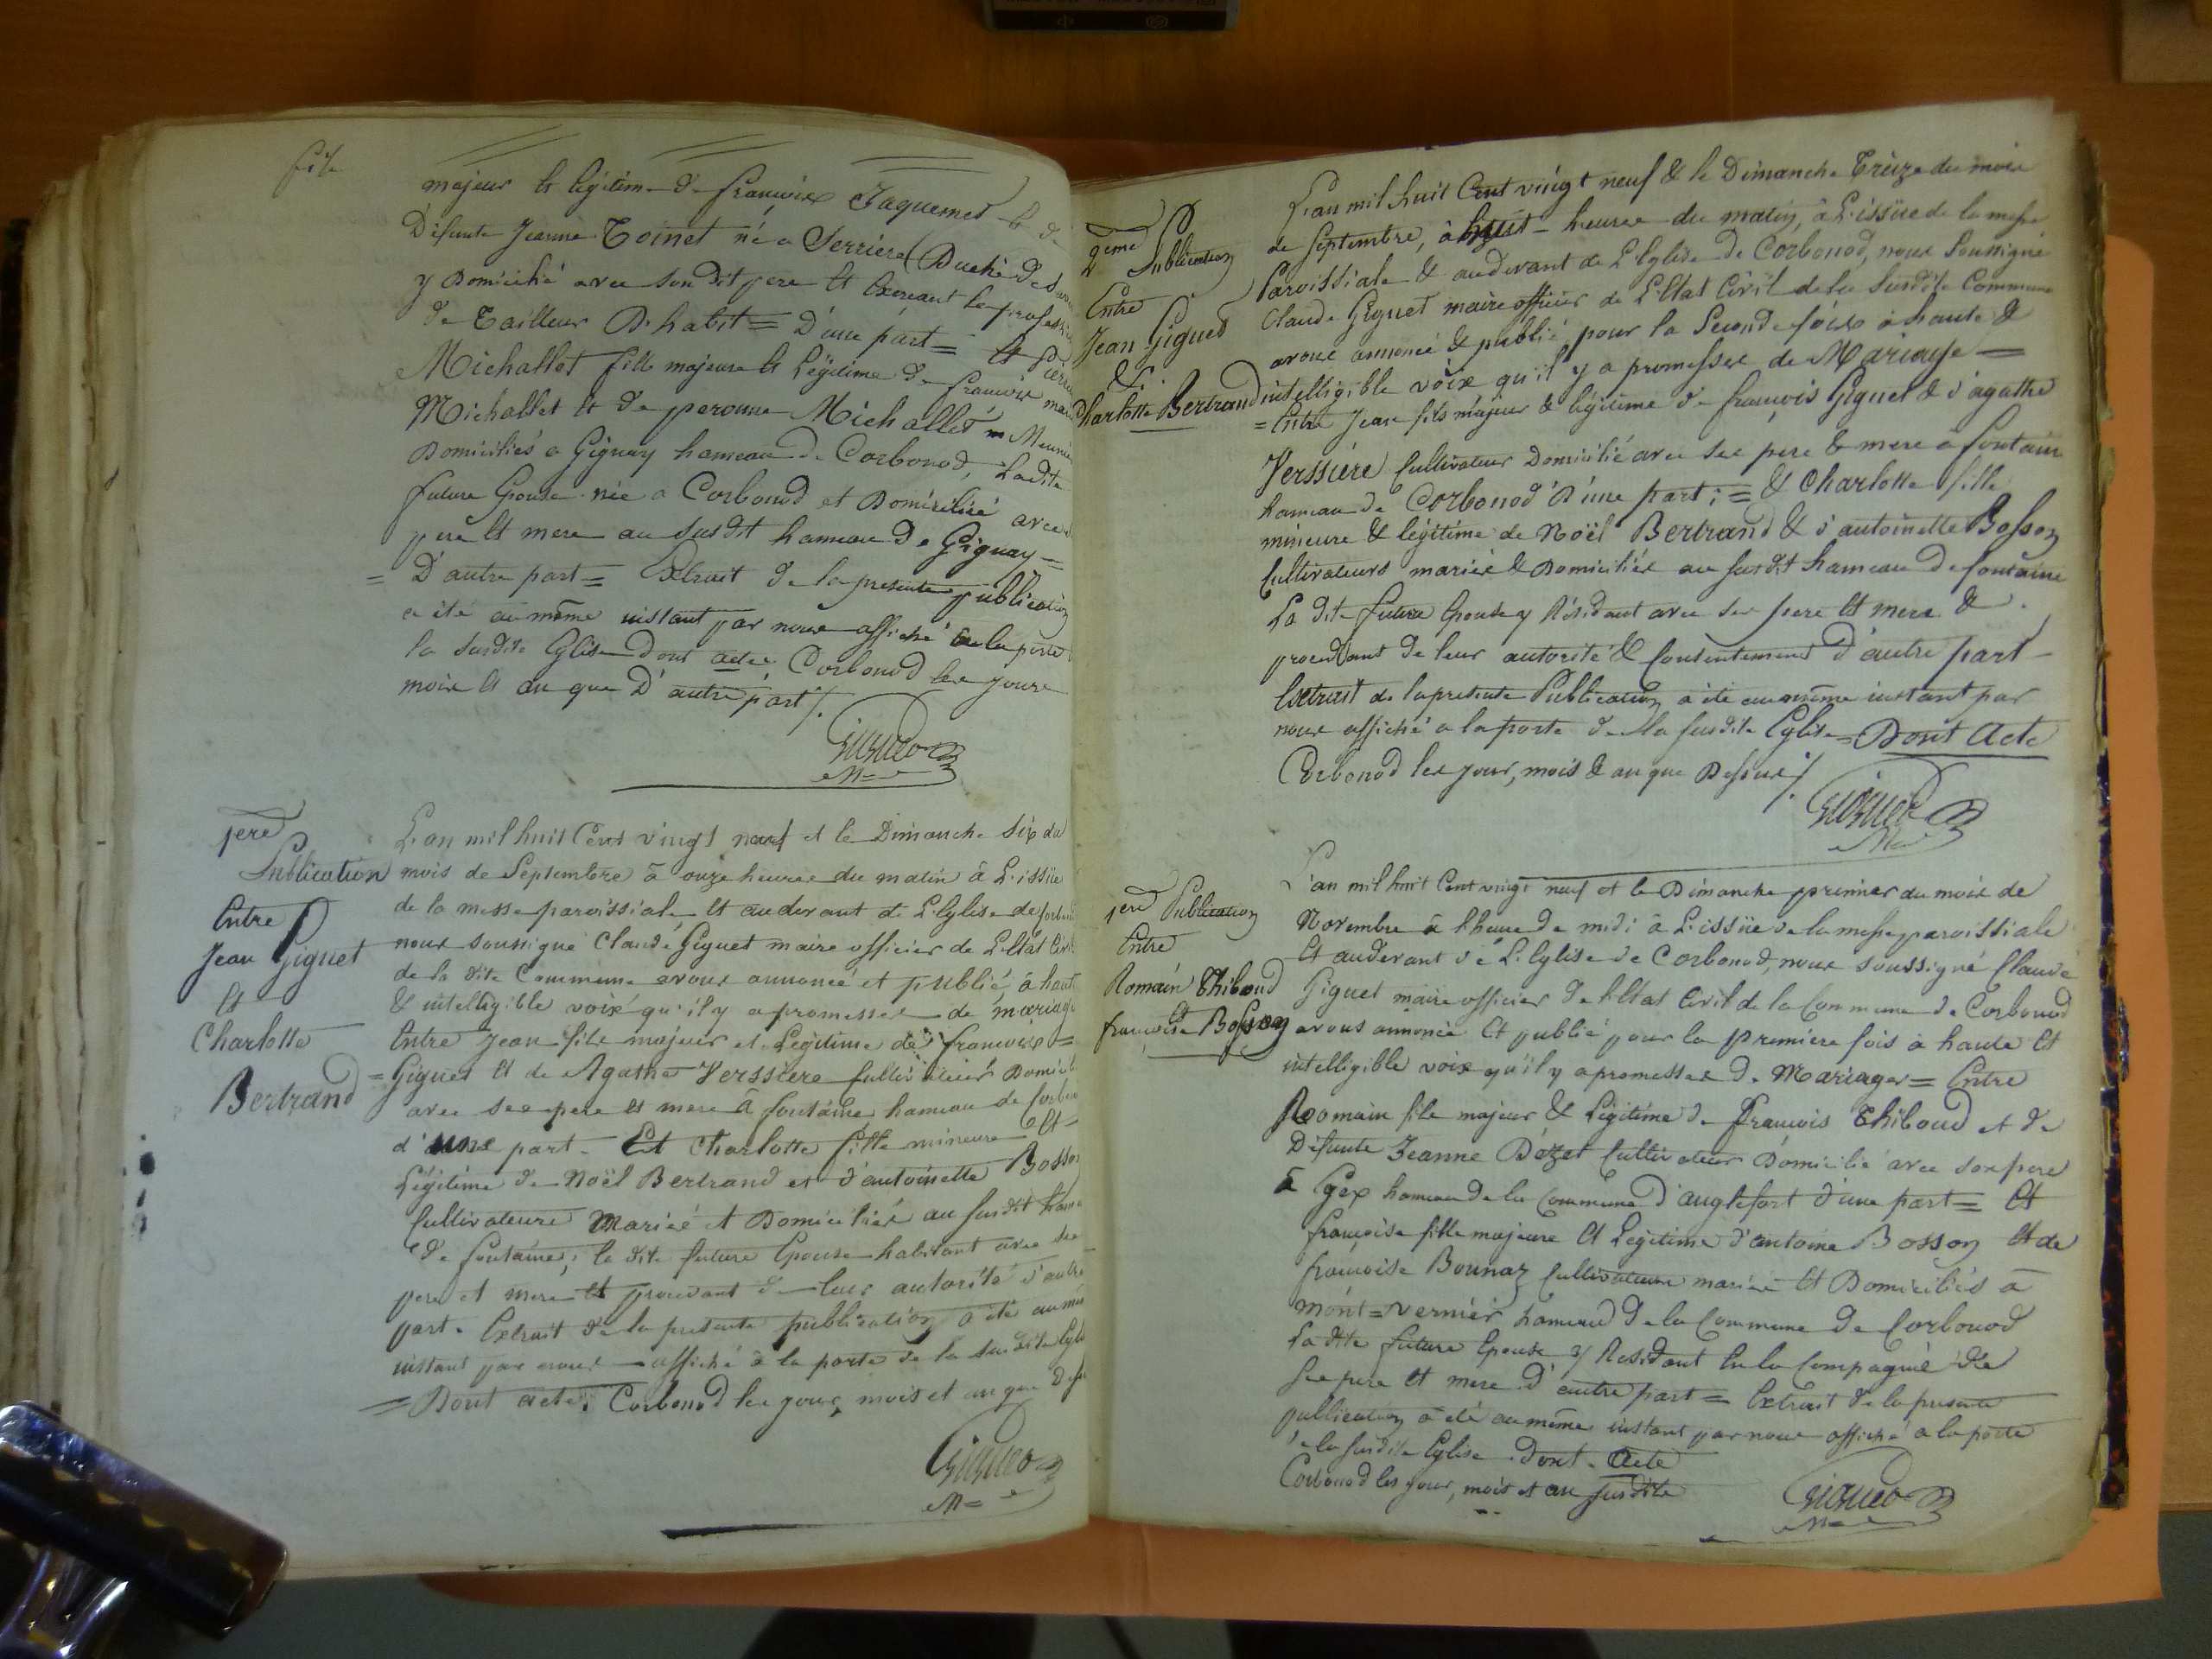 fils
majeur et légitime de françoix Jaquemet et de
Défunte Jeanne Toinet né a Serriere (Duché de
y Domicilié avec son dit pere et Exercant la profession
de Tailleur D'habit = D'une part = Et
Michallet fille majeure et Légitime de françois
Michallet et de peronne Michallet Meunier
Domiciliés a Gignay hameau de Corbonod, Ladite
future Epouse née a Corbonod et Domiciliée avec
pere et mere au susdit hameau de Gignay =
= D'autre part = Extrait de la presente publication
a été au même instant par nous affiché a la porte
la susdite Eglise Dont acte Corbonod les jours
mois et an que D'autre part /.
Giguet
M=
1ere
Publication
Entre
Jean Giguet
et
Charlotte
Bertrand
L'an mil huit Cent vingt neuf et le Dimanche Six du
mois de Septembre à onze heures du matin à L'issüe
de la messe paroissiale et au devant de L'Eglise de Corbonod
nous soussigné Claude Giguet maire officier de L'Etat Civil
de la dite Commune avons annoncé et publié, à haute
& intelligible voix qu'il y a promesses de mariage
Entre Jean fils majeur et Légitime de françoix =
= Giguet et de Agathe Verssiere Cultivateur Domicilié
avec ses pere et mere à fontaine hameau de Corbonod
d'une part - Et Charlotte fille mineure Et -
Légitime de Noël Bertrand et d'antoinette Bosson
Cultivateurs Mariés et Domiciliés au susdit hameau
de fontaine, la dite future Epouse habitant avec ses
pere et mere et procedant de leur autorité d'autre
part. Extrait de la presente publication a été au même
instant par nous - affiché à la porte de la susdite Eglise
= Dont acte. Corbonod les jour, mois et an que Dessus
Giguet
M=
2eme
Publication
Entre
Jean Giguet
&
Charlotte Bertrand
L'an mil huit Cent vingt neuf & le Dimanche Treize du mois
de Septembre, à huit - heures du matin, à L'issüe de la messe
Paroissiale & au devant de L'Eglise de Corbonod, nous Soussigné
Claude Giguet maire officier de L'Etat Civil de la Susdite Commune
avons annoncé & publié pour la Seconde foix à haute &
intelligible voix qu'il y a promesses de Mariage =
= Entre Jean fils majeur & légitime de françois Giguet & d'agathe
Verssiere Cultivateur Domicilié avec ses pere & mere a fontaine
hameau de Corbonod D'une part ; = & Charlotte fille
mineure & légitime de Noël Bertrand & d'antoinette Bosson
Cultivateurs mariés & Domiciliés au susdit hameau de fontaine
La dite future Epouse y Résidant avec ses pere et mere &
procedant de leur autorité & Consentement D'autre part -
Extrait de la presente Publication a été au même instant par
nous affiché a la porte de la susdite Eglise = Dont Acte
Corbonod les jour, mois & an que Dessus /.
Giguet
M=
1ere Publication
Entre
Romain Thiboud
et
françoise Bosson
L'an mil huit Cent vingt neuf et le Dimanche premier du mois de
Novembre à L'heure de midi à L'issüe de la messe paroissiale
Et au devant de L'Eglise de Corbonod, nous soussigné Claude
Giguet maire officier de l'Etat Civil de la Commune de Corbonod
avons annoncé Et publié pour la première fois à haute Et
intelligible voix qu'il y a promesses de Mariage = Entre
Romain fils majeur & Légitime de François Thiboud et de
Défunte Jeanne Dezet Cultivateur Domicilié avec son pere
à Gex hameau de la Commune d'anglefort d'une part = Et
françoise fille majeure Et Legitime d'antoine Bosson Et de
françoise Bounaz Cultivateurs mariés Et Domiciliés à
mont = vernier hameau de la Commune de Corbonod
La dite future Epouse y Residant En la Compagnie de
ses pere Et mere d'autre part = Extrait de la presente
publication a été au même instant par nous affiché a la porte
de la susdite Eglise Dont - Acte
Corbonod les jour, mois et an susdits
Giguet
M=